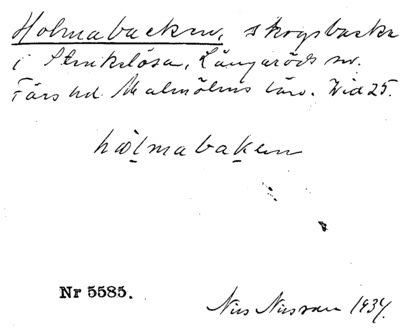 Holmabacken, skogsbacke
i Stenkilösa, Långaröds sn.
Färs hd. Malmöhus län. Vid 25.
hωlmabaken
Nr 5585.
Nils Nilsson 1934.